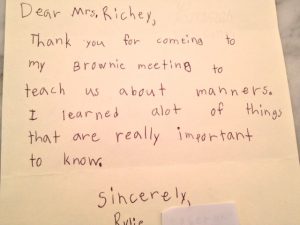 Dear Mrs. Richey,
Thank you for comeing to
my Brownie meeting to
teach us about manners.
I learned alot of things
that are really important
to know.
Sincerely,
Rylie